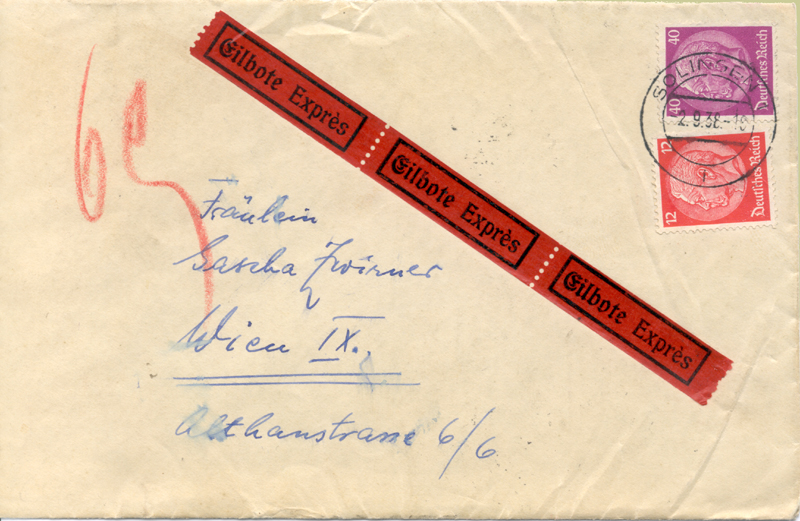 40
40
Deutsches Reich
SOLINGEN
2.9.38.-19
12
12
Deutsches Reich
Eilbote Exprès
Eilbote Exprès
Eilbote Exprès
Fräulein
Sascha Zwirner
Wien IX.,
Althanstrasse 6/6